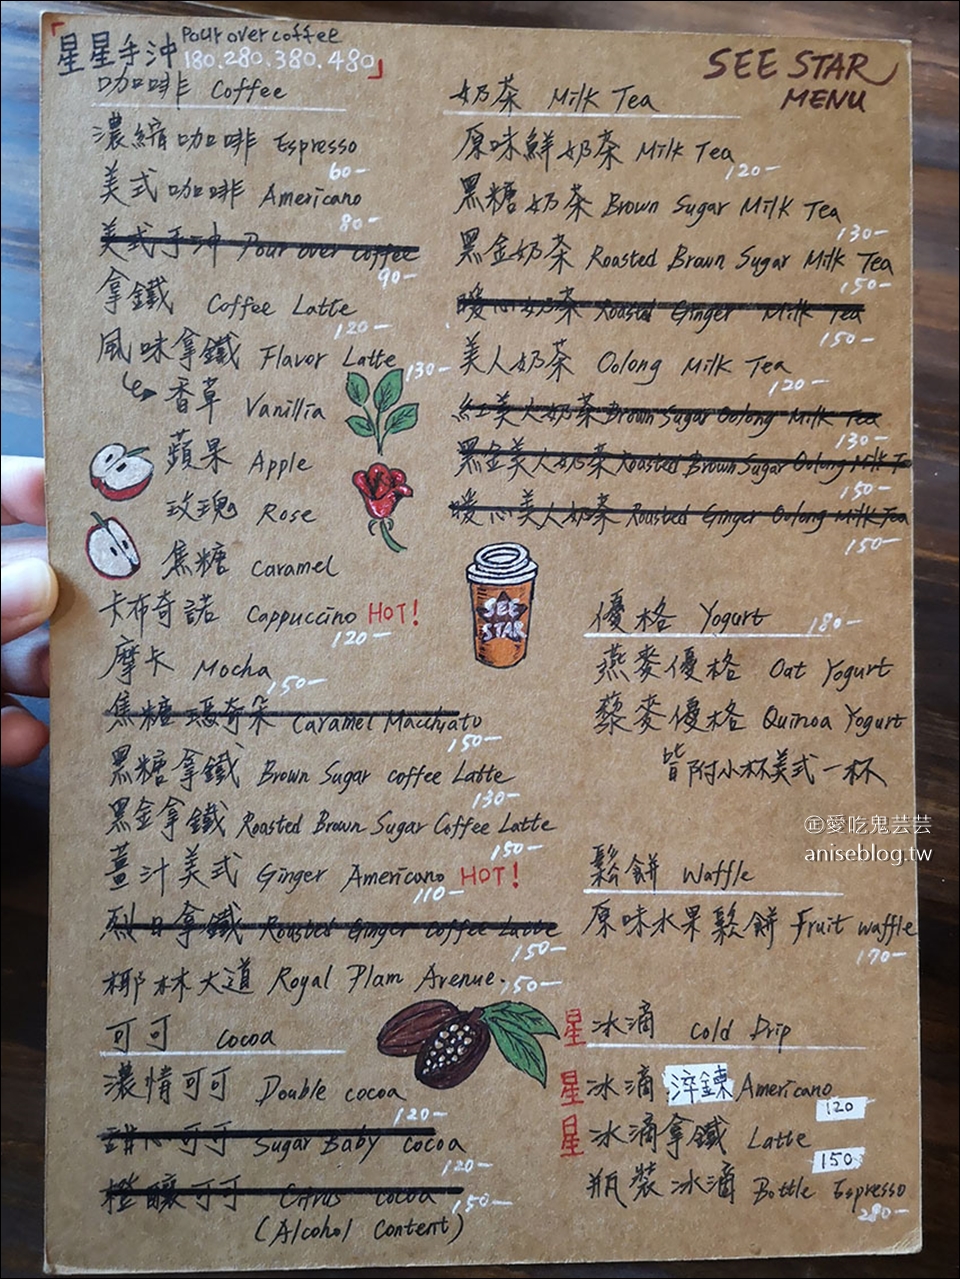 「星星手沖 Pour over coffee
180.280.380.480」
SEE STAR
MENU
咖啡 Coffee
濃縮咖啡 Espresso
60-
美式咖啡 Americano
80-
美式手沖 Pour over coffee
90-
拿鐵 Coffee Latte
120-
風味拿鐵 Flavor Latte
130-
香草 Vanillia
蘋果 Apple
玫瑰 Rose
焦糖 Caramel
卡布奇諾 Cappuccino HOT!
120-
摩卡 Mocha
150-
焦糖瑪奇朵 Caramel Macchiato
150-
黑糖拿鐵 Brown Sugar coffee Latte
130-
黑金拿鐵 Roasted Brown Sugar Coffee Latte
150-
薑汁美式 Ginger Americano HOT!
110-
烈日拿鐵 Roasted Ginger Coffee Latte
150-
椰林大道 Royal Plam Avenue.
150-
可可 Cocoa
濃情可可 Double cocoa
120-
甜心可可 Sugar Baby cocoa
120-
橙釀可可 Citrus cocoa
150-
(Alcohol Content)
奶茶 Milk Tea
原味鮮奶茶 Milk Tea
120-
黑糖奶茶 Brown Sugar Milk Tea
130-
黑金奶茶 Roasted Brown Sugar Milk Tea
150-
暖心奶茶 Roasted Ginger Milk Tea
150-
美人奶茶 Oolong Milk Tea
120-
紅美人奶茶 Brown Sugar Oolong Milk Tea
130-
黑金美人奶茶 Roasted Brown Sugar Oolong Milk T
150-
暖心美人奶茶 Roasted Ginger Oolong Milk Tea
150-
SEE
STAR
優格 Yogurt 180-
燕麥優格 Oat Yogurt
藜麥優格 Quinoa Yogurt
皆附小杯美式一杯
正愛吃鬼芸芸
aniseblog.tw
鬆餅 Waffle
原味水果鬆餅 Fruit waffle
170-
星冰滴 Cold Drip
星冰滴淬鍊 Americano
120
星冰滴拿鐵 Latte
150
瓶裝冰滴 Bottle Espresso
280-